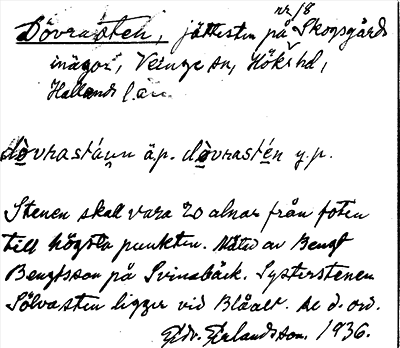 nr 18
Dövrasten, jättesten på Skogsgårds
inägor, Veinge sn, Höks hd,
Hallands län.
dövrastáⱥn äp. dòvrastén y.p.
Stenen skall vara 20 alnar från foten
till högsta punkten. Nämd av Bengt
Bengtsson på Svinabäck. Systerstenen
Sölvasten ligger vid Blåalt. Se d. ord.
Edv. Erlandsson. 1936.